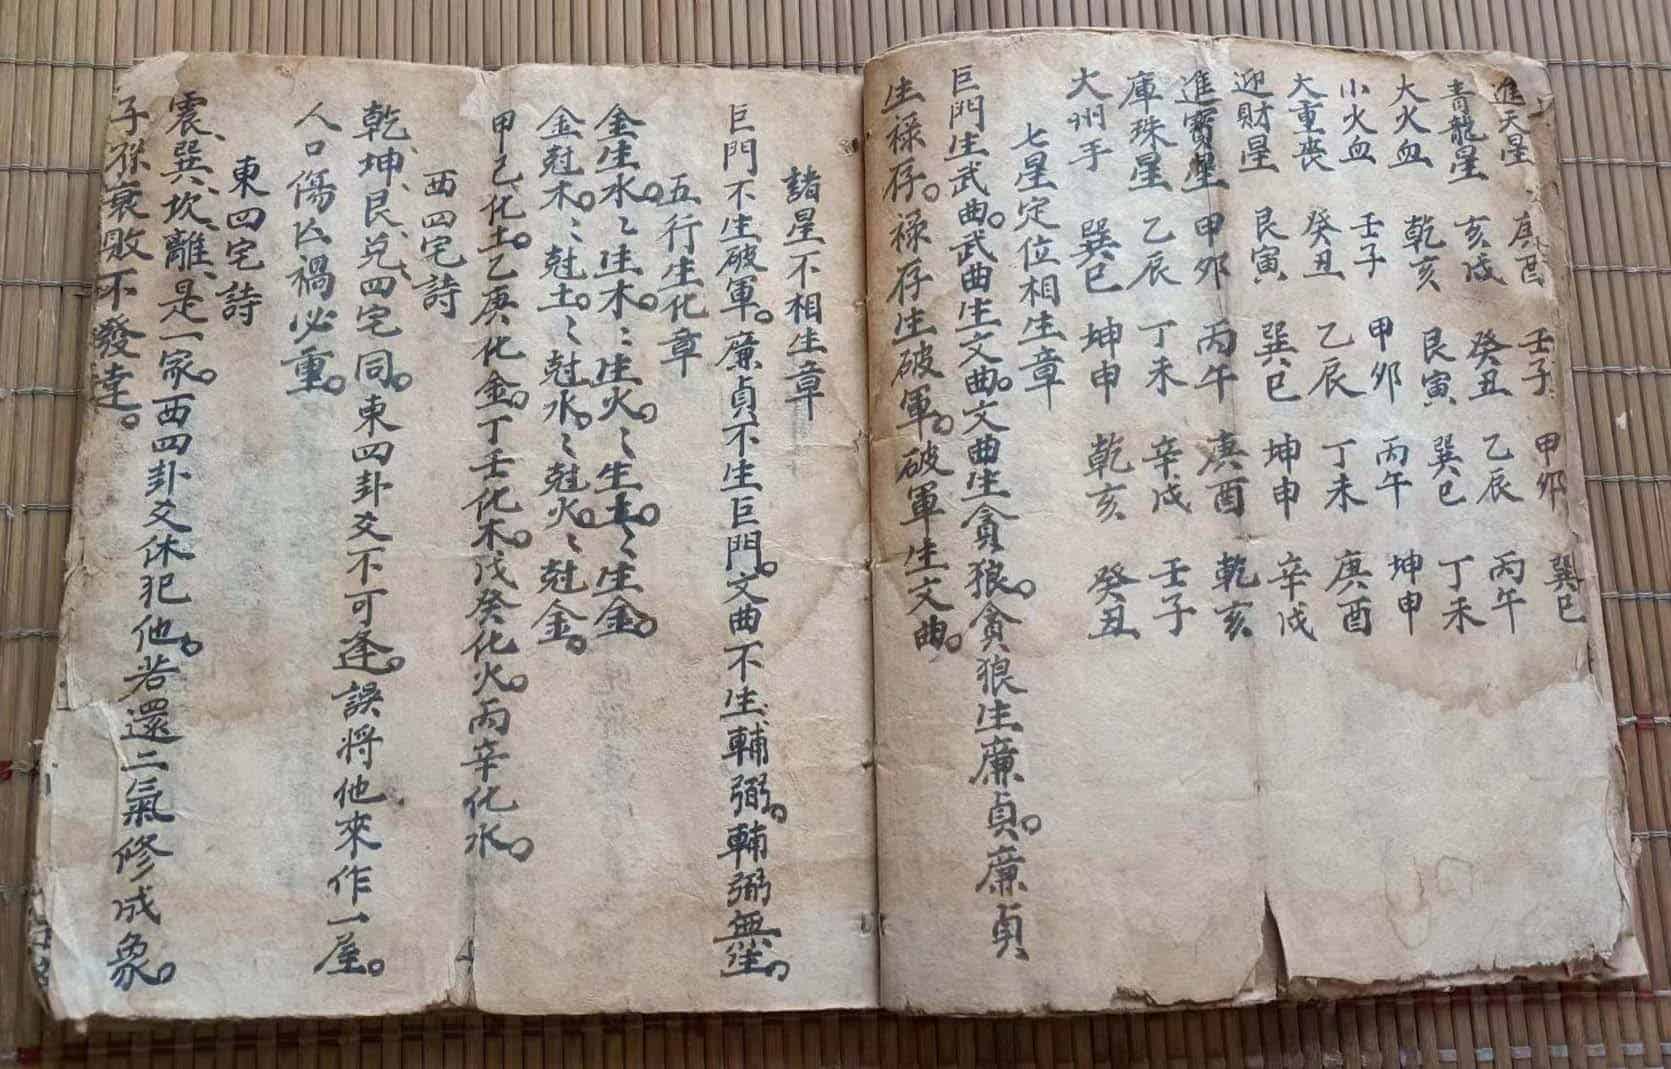 進天星 庚酉 壬子 甲卯 巽巳
青龍星 亥戌 癸丑 乙辰 丙午
大火血 乾亥 艮寅 巽巳 丁未
小火血 壬子 甲卯 丙午 坤申
大重喪 癸丑 乙辰 丁未 庚酉
迎財星 艮寅 巽巳 坤申 辛戌
進寳星 甲卯 丙午 庚酉 乾亥
庫珠星 乙辰 丁未 辛戌 壬子
大州手 巽巳 坤申 乾亥 癸丑
七星定位相生章
巨門生武曲。武曲生文曲。文曲生貪狼。貪狼生廉貞。廉貞
生禄存。禄存生破軍。破軍生文曲。
諸星不相生章
巨門不生破軍。廉貞不生巨門。文曲不生輔弼。輔弼無
五行生化章
金生水。〻生木。〻生火。〻生土。〻生金。
金尅木。〻尅土。〻尅水。〻尅火。〻尅金。
甲己化土。乙庚化金。丁壬化木。戊癸化火。丙辛化水。
西四宅詩
乾、坤、艮、兑、四宅同。東四卦爻不可逢。誤將他來作一屋。
人口傷亡禍必重。
東四宅詩
震、巽、坎、離、是一家。西四卦爻休犯他。若還二氣修成象。
子孫衰敗不發達。